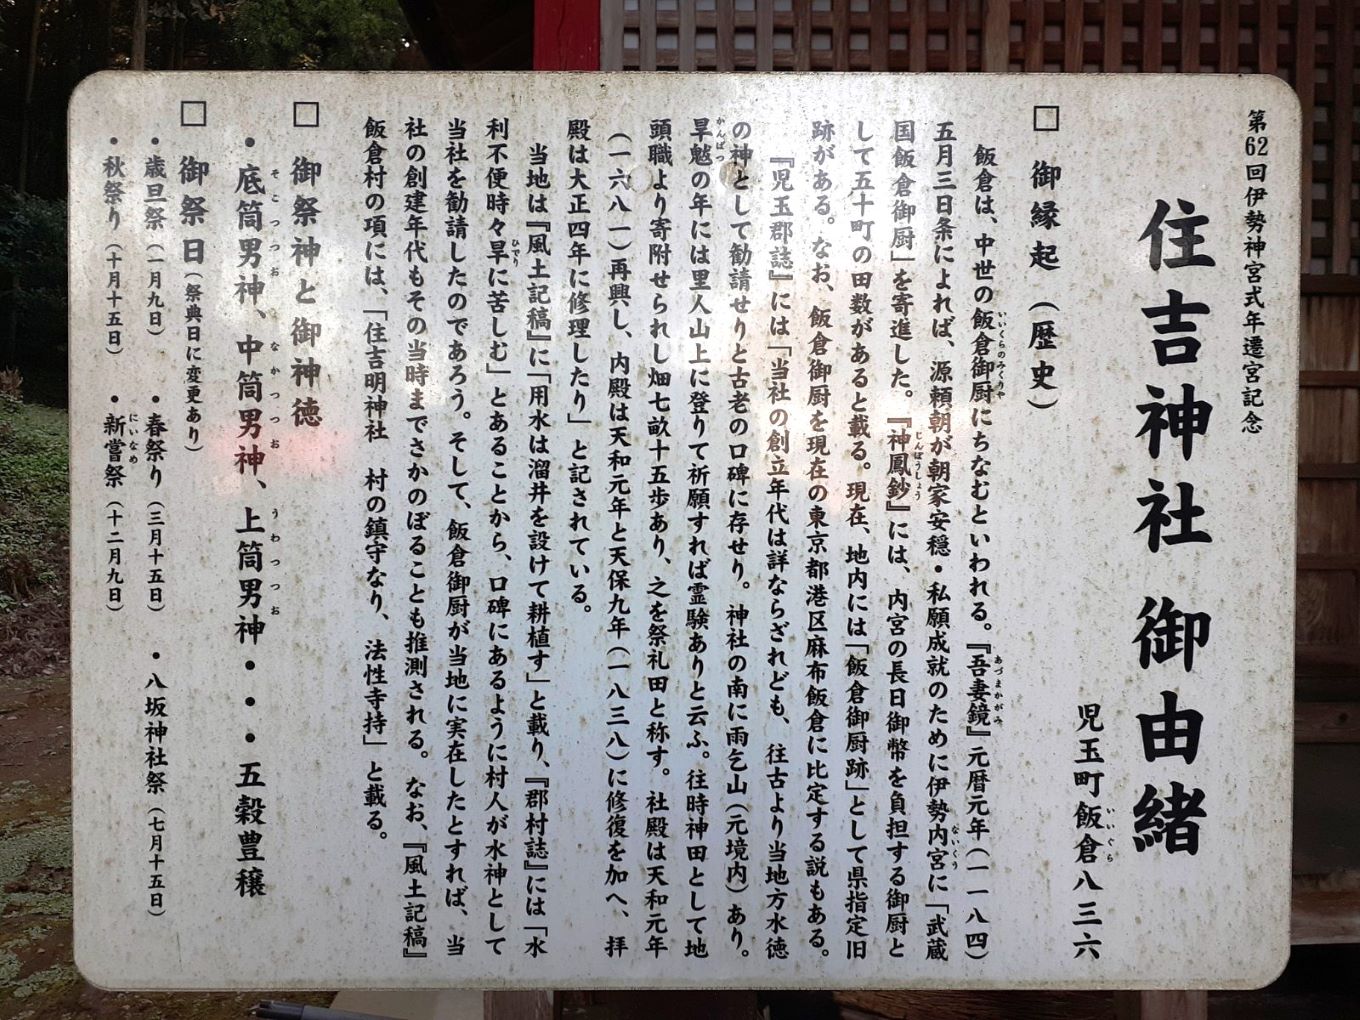 第62回伊勢神宮式年遷宮記念
住吉神社 御由緒
児玉町飯倉八三六
□ 御縁起（歴史）
飯倉は、中世の飯倉御厨にちなむといわれる。『吾妻鏡』元暦元年（一一八四）
五月三日条によれば、源頼朝が朝家安穏・私願成就のために伊勢内宮に「武蔵
国飯倉御厨」を寄進した。『神鳳鈔』には、内宮の長日御幣を負担する御厨と
して五十町の田数があると載る。現在、地内には「飯倉御厨跡」として県指定旧
跡がある。なお、飯倉御厨を現在の東京都港区麻布飯倉に比定する説もある。
『児玉郡誌』には「当社の創立年代は詳ならざれども、往古より当地方水徳
の神として勧請せりと古老の口碑に存せり。神社の南に雨乞山（元境内）あり。
旱魃の年には里人山上に登りて祈願すれば霊験ありと云ふ。往時神田として地
頭職より寄附せられし畑七畝十五歩あり、之を祭礼田と称す。社殿は天和元年
（一六八一）再興し、内殿は天和元年と天保九年（一八三八）に修復を加へ、拝
殿は大正四年に修理したり」と記されている。
当地は『風土記稿』に「用水は溜井を設けて耕植す」と載り、『郡村誌』には「水
利不便時々旱に苦しむ」とあることから、口碑にあるように村人が水神として
当社を勧請したのであろう。そして、飯倉御厨が当地に実在したとすれば、当
社の創建年代もその当時までさかのぼることも推測される。なお、『風土記稿』
飯倉村の項には、「住吉明神社 村の鎮守なり、法性寺持」と載る。
□ 御祭神と御神徳
・底筒男神、中筒男神、上筒男神・・・五穀豊穣
□ 御祭日（祭典日に変更あり）
・歳旦祭（一月九日） ・春祭り（三月十五日） ・八坂神社祭（七月十五日）
・秋祭り（十月十五日） ・新嘗祭（十二月九日）